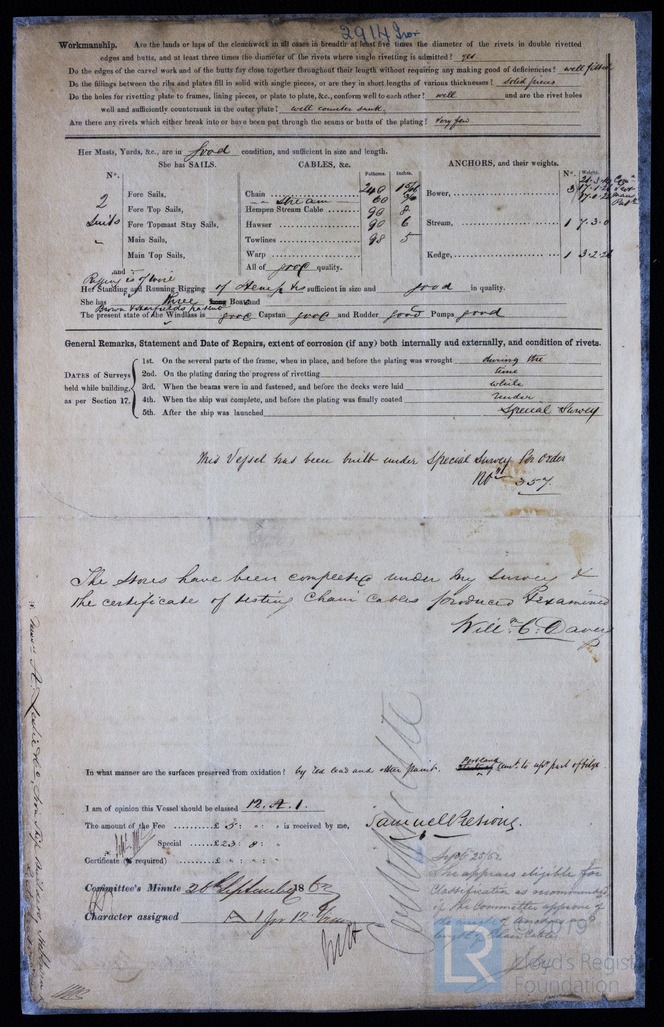 2914 Iron
Workmanship. Are the lands or laps of the clenchwork in all cases in breadth at least five times the diameter of the rivets in double rivetted
edges and butts, and at least three times the diameter of the rivets where single rivetting is admitted? yes
Do the edges of the carvel work and of the butts fay close together throughout their length without requiring any making good of deficiencies? well fitted
Do the fillings between the ribs and plates fill in solid with single pieces, or are they in short lengths of various thicknesses? solid pieces
Do the holes for rivetting plate to frames, lining pieces, or plate to plate, &c., conform well to each other? well and are the rivet holes
well and sufficiently countersunk in the outer plate? well counter sunk.
Are there any rivets which either break into or have been put through the seams or butts of the plating? very few
Her Masts, Yards, &c., are in good condition, and sufficient in size and length.
She has SAILS. CABLES, &c. ANCHORS, and their weights.
Nº. Fathoms. Inches. Nº. Weights.
2 Fore Sails, Chain 240
Suits Fore Top Sails, stream 60 Bower, 3
Fore Topmast Stay Sails, Hempen Stream Cable 90 8
Hawser 90 6 Stream, 1 7.3.0
Main Sails, Towlines 98 5
Main Top Sails, Warp Kedge, 1
and All of good quality.
Her Standing and Running Rigging of Hemp is sufficient in size and good in quality.
She has three Long Boat and
The present state of the Windlass is good Capstan good and Rudder good Pumps good
General Remarks, Statement and Date of Repairs, extent of corrosion (if any) both internally and externally, and condition of rivets.
DATES of Surveys held while building, as per Section 17.
1st. On the several parts of the frame, when in place, and before the plating was wrought during the
2nd. On the plating during the progress of rivetting time
3rd. When the beams were in and fastened, and before the decks were laid while
4th. When the ship was complete, and before the plating was finally coated under
5th. After the ship was launched Special Survey
This Vessel has been built under Special Survey for order
No 357.
The stores have been completed under my survey &
the certificate of testing Chain Cables produced & examined
Will. C. Davey
In what manner are the surfaces preserved from oxidation? by red lead and other paint. Portland Cemt. to upr part of bilge
I am of opinion this Vessel should be classed 12. A. 1.
The amount of the Fee £ 5 : " : " is received by me,
Special £ 23 : 8 : "
Certificate (if required) £ " : " : "
Committee's Minute 26 September 1862
Character assigned A 1 for 12
Sept 25/62
She appears eligible for
classification as recommended
© 2019
LR
Lloyd's Register
Foundation